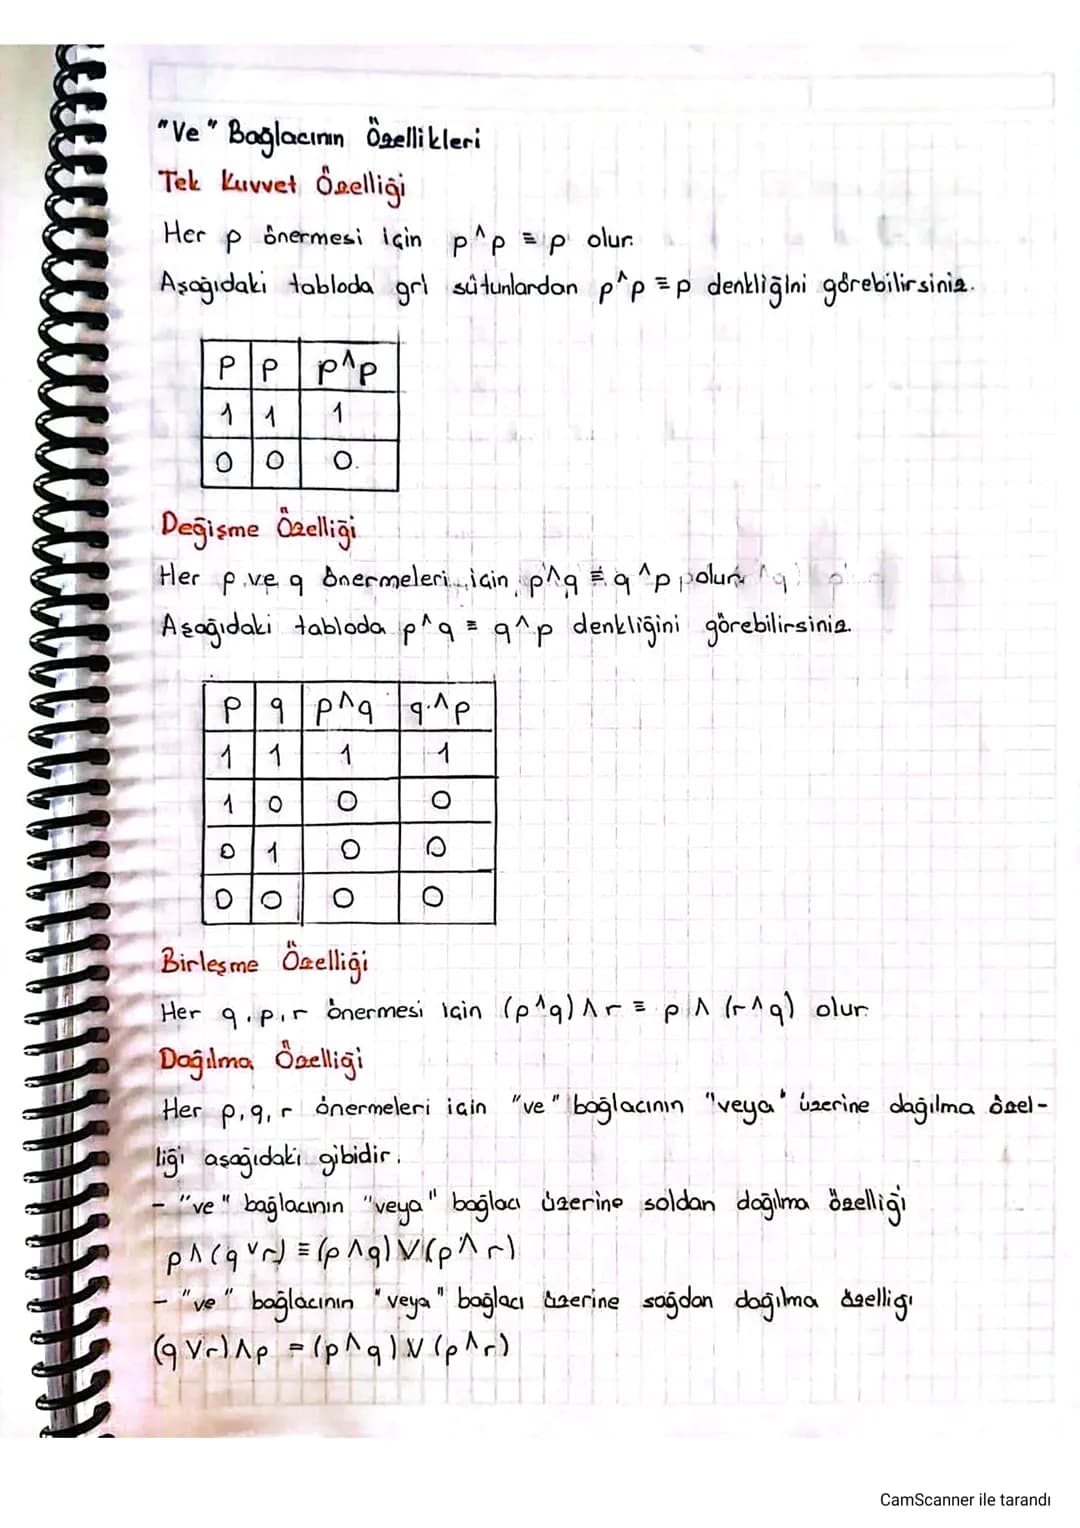 "Ve" Bağlacının Özellikleri
Tek Kuvvet Özelliği
Her p önermesi için p^p ≡ p olur.
Aşağıdaki tabloda gri sütunlardan p^p ≡ p denkliğini görebilirsiniz.
P P p^p
1 1 1
0 0 0.
Değişme Özelliği
Her p ve q önermeleri için p^q ≡ q^p olur.
Aşağıdaki tabloda p^q ≡ q^p denkliğini görebilirsiniz.
P q p^q q^p
1 1 1 1
1 0 0 0
0 1 0 0
0 0 0 0
Birleşme Özelliği
Her q, p, r önermesi için (p^q) ∧ r ≡ p ∧ (r^q) olur.
Dağılma Özelliği
Her p, q, r önermeleri için "ve" bağlacının "veya" üzerine dağılma özel-
liği aşağıdaki gibidir.
- "ve" bağlacının "veya" bağlacı üzerine soldan dağılma özelliği
p ∧ (q ∨ r) ≡ (p ∧ q) ∨ (p ∧ r)
- "ve" bağlacının "veya" bağlacı üzerine sağdan dağılma özelligi
(q ∨ r) ∧ p = (p ∧ q) ∨ (p ∧ r)
CamScanner ile tarandı